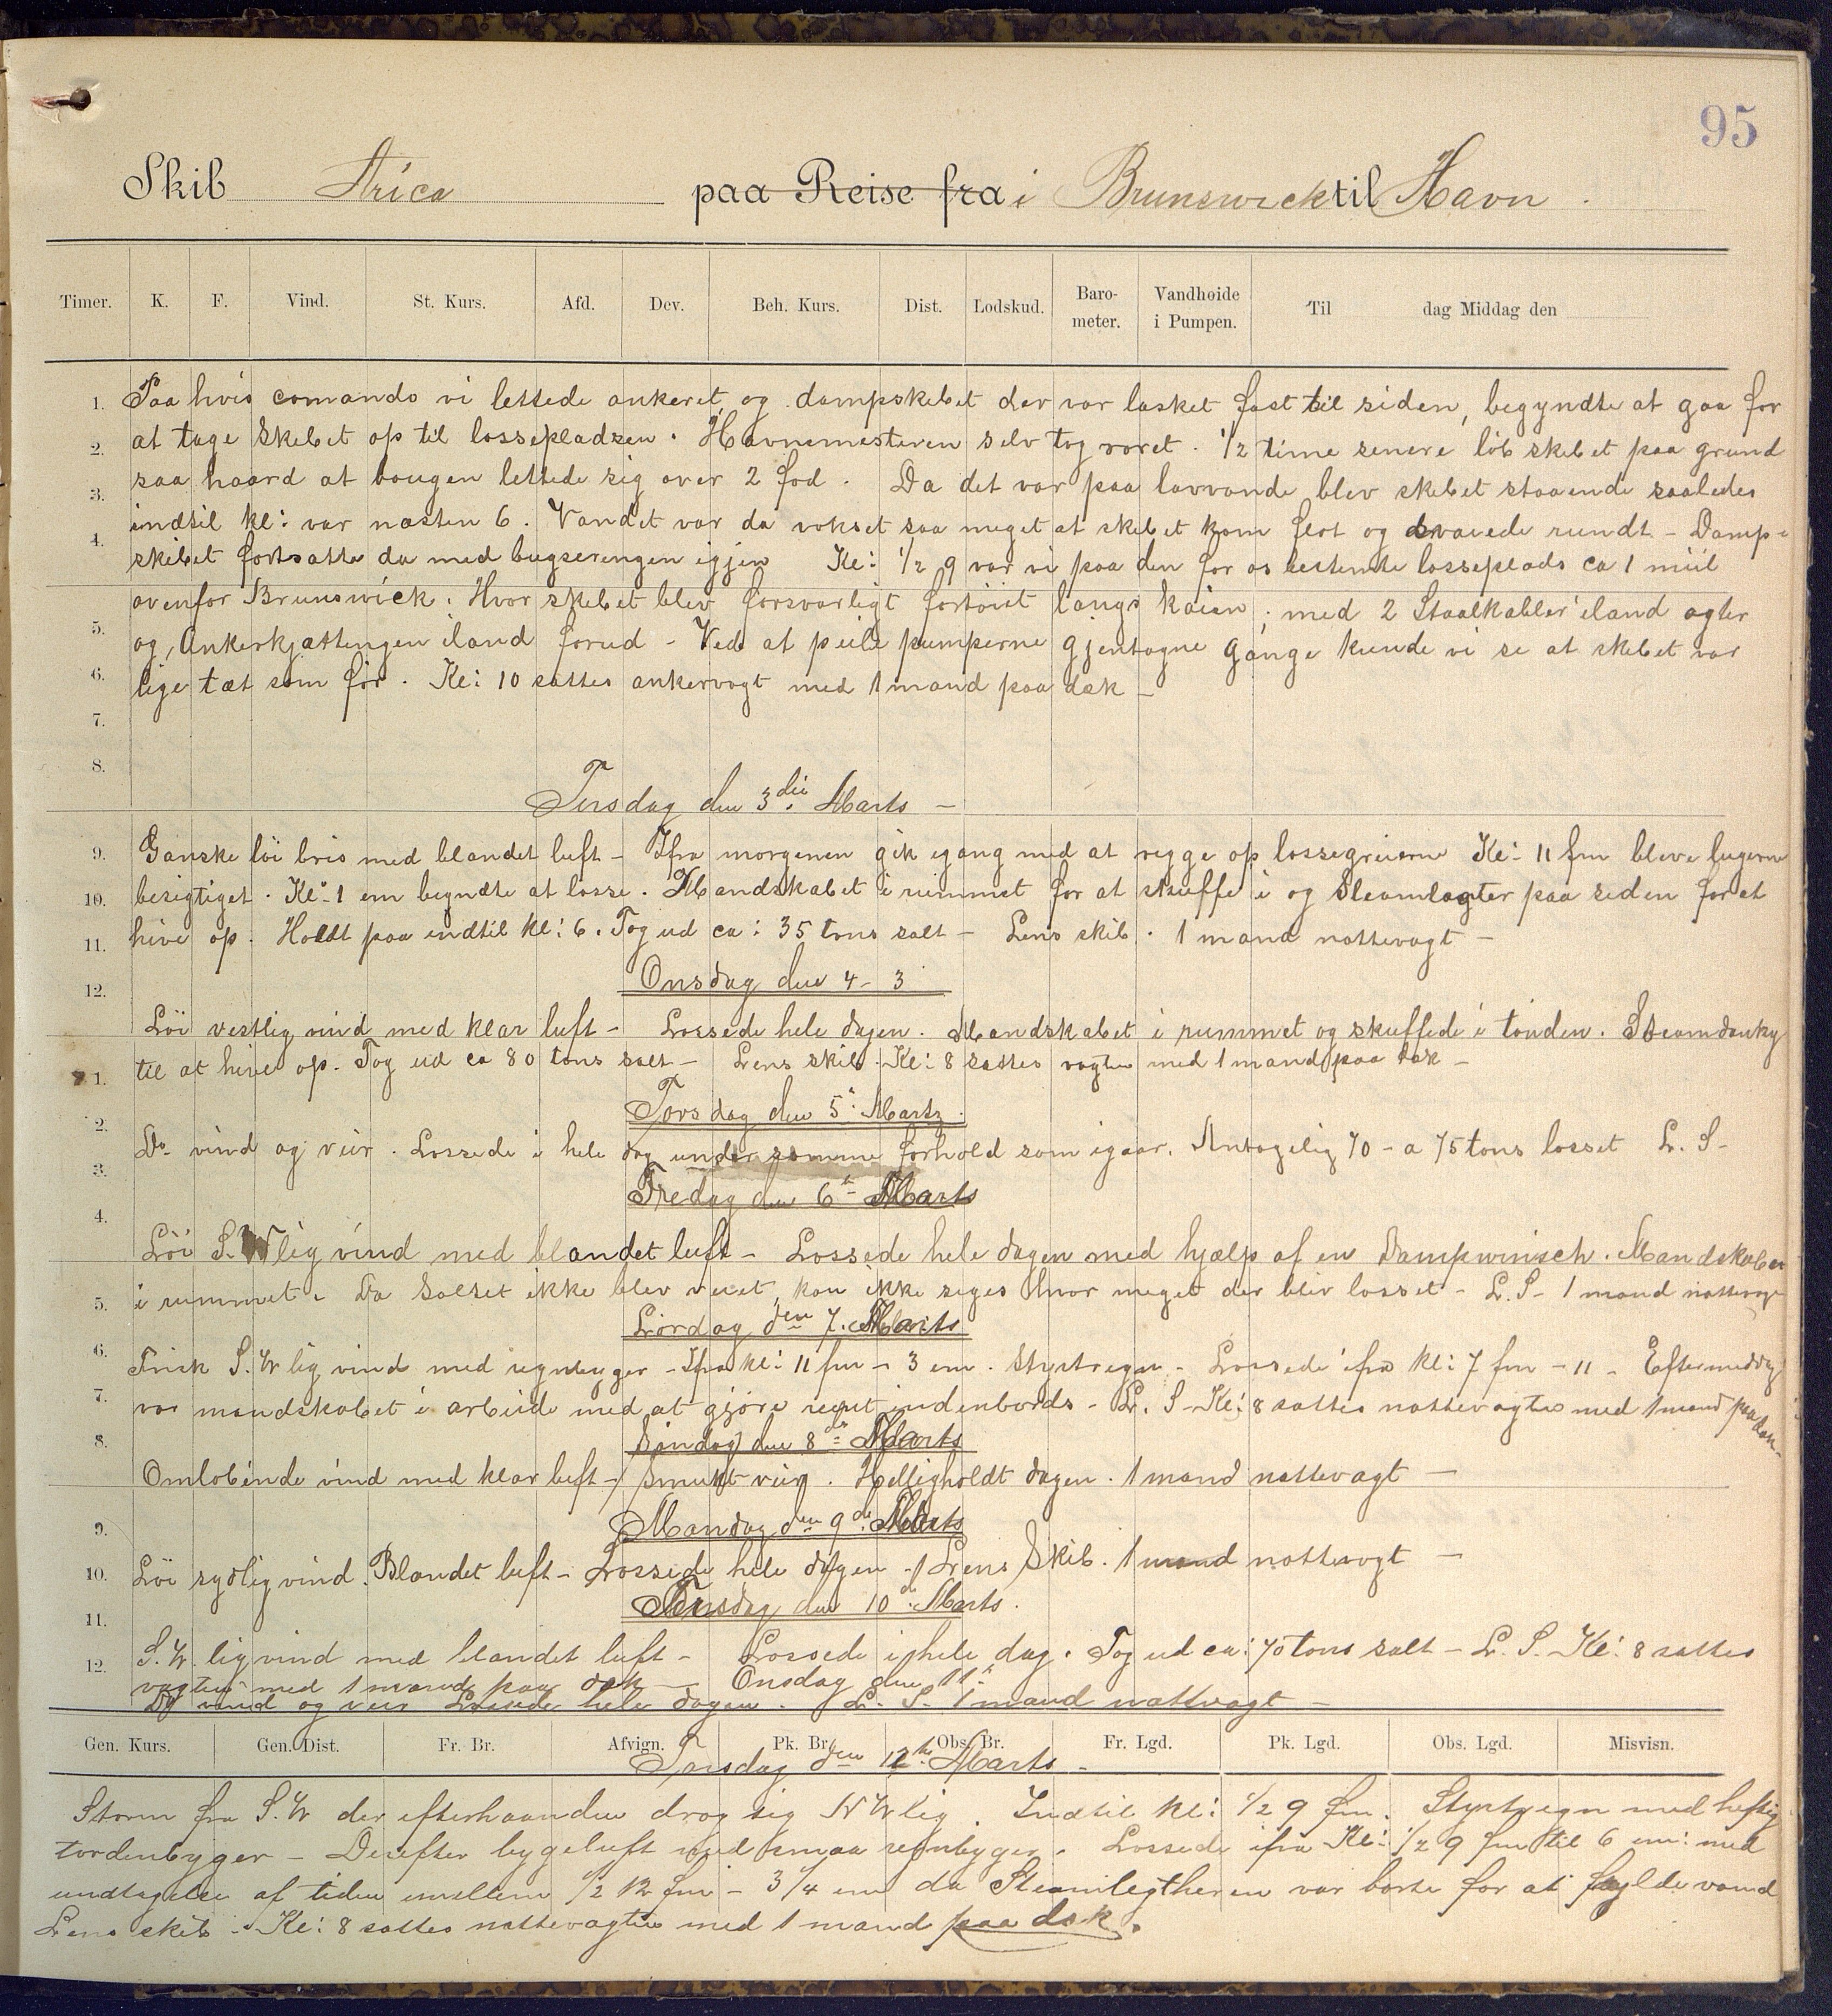 95
Skib Arica paa Reise fra i Brunswick til Havn.
Timer. K. F. Vind. St. Kurs. Afd. Dev. Beh. Kurs. Dist. Lodskud. Barometer. Vandhøide i Pumpen. Til dag Middag den
1. Paa hvis comando vi lettede ankeret, og dampskibet der var lasket fast til siden, begyndte at gaa for
2. at tage skibet op til lossepladsen. Havnemesteren selv tog roret. 1/2 time senere löb skibet paa grund
3. saa haard at bougen lettede sig over 2 fod. Da det var paa lavvande blev skibet staaende saaledes
indtil kl: var næsten 6. Vandet var da vokset saa meget at skibet kom flot og svaiede rundt - Damp-
4. skibet fortsatte da med bugseringen igjen Kl: 1/2 9 var vi paa den for os bestemte losseplads ca 1 miil
ovenfor Brunswick. Hvor skibet blev forsvarligt fortöiet langs kaien, med 2 Staalkabler iland agter
5. og Ankerkjættingen iland forud - Ved at peile pumperne gjentagne gange kunde vi se at skibet var
6. lige tæt som för. Kl: 10 sattes ankervagt med 1 mand paa dæk -
7.
8.
Tirsdag den 3die Marts -
9. Ganske löi bris med blandet luft - Ifra morgenen gik igang med at rigge op lossegreierne Kl: 11 fm bleve lugerne
10. besigtiget. Kl: 1 em begyndte at losse. Mandskabet i rummet for at skuffe i og Steamlagter paa siden for at
11. hive op. Holdt paa indtil kl: 6. Tog ud ca: 35 tons salt - Lens skib. 1 mand nattevagt -
Onsdag den 4 - 3
12.
Löi vestlig vind med klar luft - Lossede hele dagen. Mandskabet i rummet og skuffede i tönden. Steamdonky
1. til at hive op. Tog ud ca 80 tons salt - Lens skib. Kl: 8 sattes vagten med 1 mand paa dæk -
Torsdag den 5. Martz.
2.
Do vind og veir. Lossede i hele dag under samme forhold som igaar. Antagelig 70 - a 75 tons losset L. S -
3.
Fredag den 6te Marts
4.
Löi S.W lig vind med blandet luft - Lossede hele dagen med hjælp af en Dampwinsch. Mandskabet
5. i rummet. Da Saltet ikke blev veiet, kan ikke siges hvor meget der blev losset - L. S - 1 mand nattevagt
Lördag den 7. Marts
6. Frisk S.W lig vind med regnbyger - Ifra kl: 11 fm - 3 em. Styrtregn - Lossede ifra kl: 7 fm - 11 - Eftermiddag
7. var mandskabet i arbeide med at gjöre reent indenbords - L. S - Kl: 8 sattes nattevagten med 1 mand paa dæk -
8. Söndag den 8de Marts
Omlöbende vind med klar luft - smukt veir. Helligholdt dagen. 1 mand nattevagt -
9. Mandag den 9de Marts
10. Löi sydlig vind. Blandet luft - Lossede hele dagen - Lens Skib. 1 mand nattevagt -
11. Tirsdag den 10de Marts.
12. S.W. lig vind med blandet luft - Lossede i hele dag. Tog ud ca: 70 tons salt - L. S. Kl: 8 sattes
vagten med 1 mand paa dæk - Onsdag den 11te
Do vind og veir Lossede hele dagen. L. S. 1 mand nattvagt -
Gen. Kurs. Gen. Dist. Fr. Br. Afvign. Pk. Br. Obs. Br. Fr. Lgd. Pk. Lgd. Obs. Lgd. Misvisn.
Torsdag den 12te Marts -
Storm fra S.W der efterhaanden drog sig N W lig Indtil kl: 1/2 9 fm. Styrtregn med heftig
tordenbyger - Derefter bygeluft med smaa regnbyger. Lossede ifra Kl: 1/2 9 fm til 6 em: med
undtagelse af tiden imellem 1/2 12 fm - 3 1/4 em da Steamlegtheren var borte for at fylde vand
Lens skib. Kl: 8 sattes nattevagten med 1 mand paa dæk.